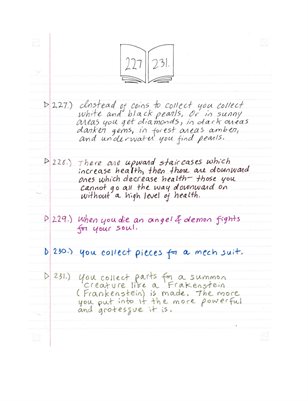 227
231.
227.) Instead of coins to collect you collect
white and black pearls, Or in sunny
areas you get diamonds, in dark areas
darker gems, in forest areas amber,
and underwater you find pearls.
228.) There are upward staircases which
increase health, then there are downward
ones which decrease health - those you
cannot go all the way downward on
without a high level of health.
229.) When you die an angel & demon fights
for your soul.
230.) You collect pieces for a mech suit.
231.) You collect parts for a summon
creature like a Frakenstein
(Frankenstein) is made. The more
you put into it the more powerful
and grotesque it is.